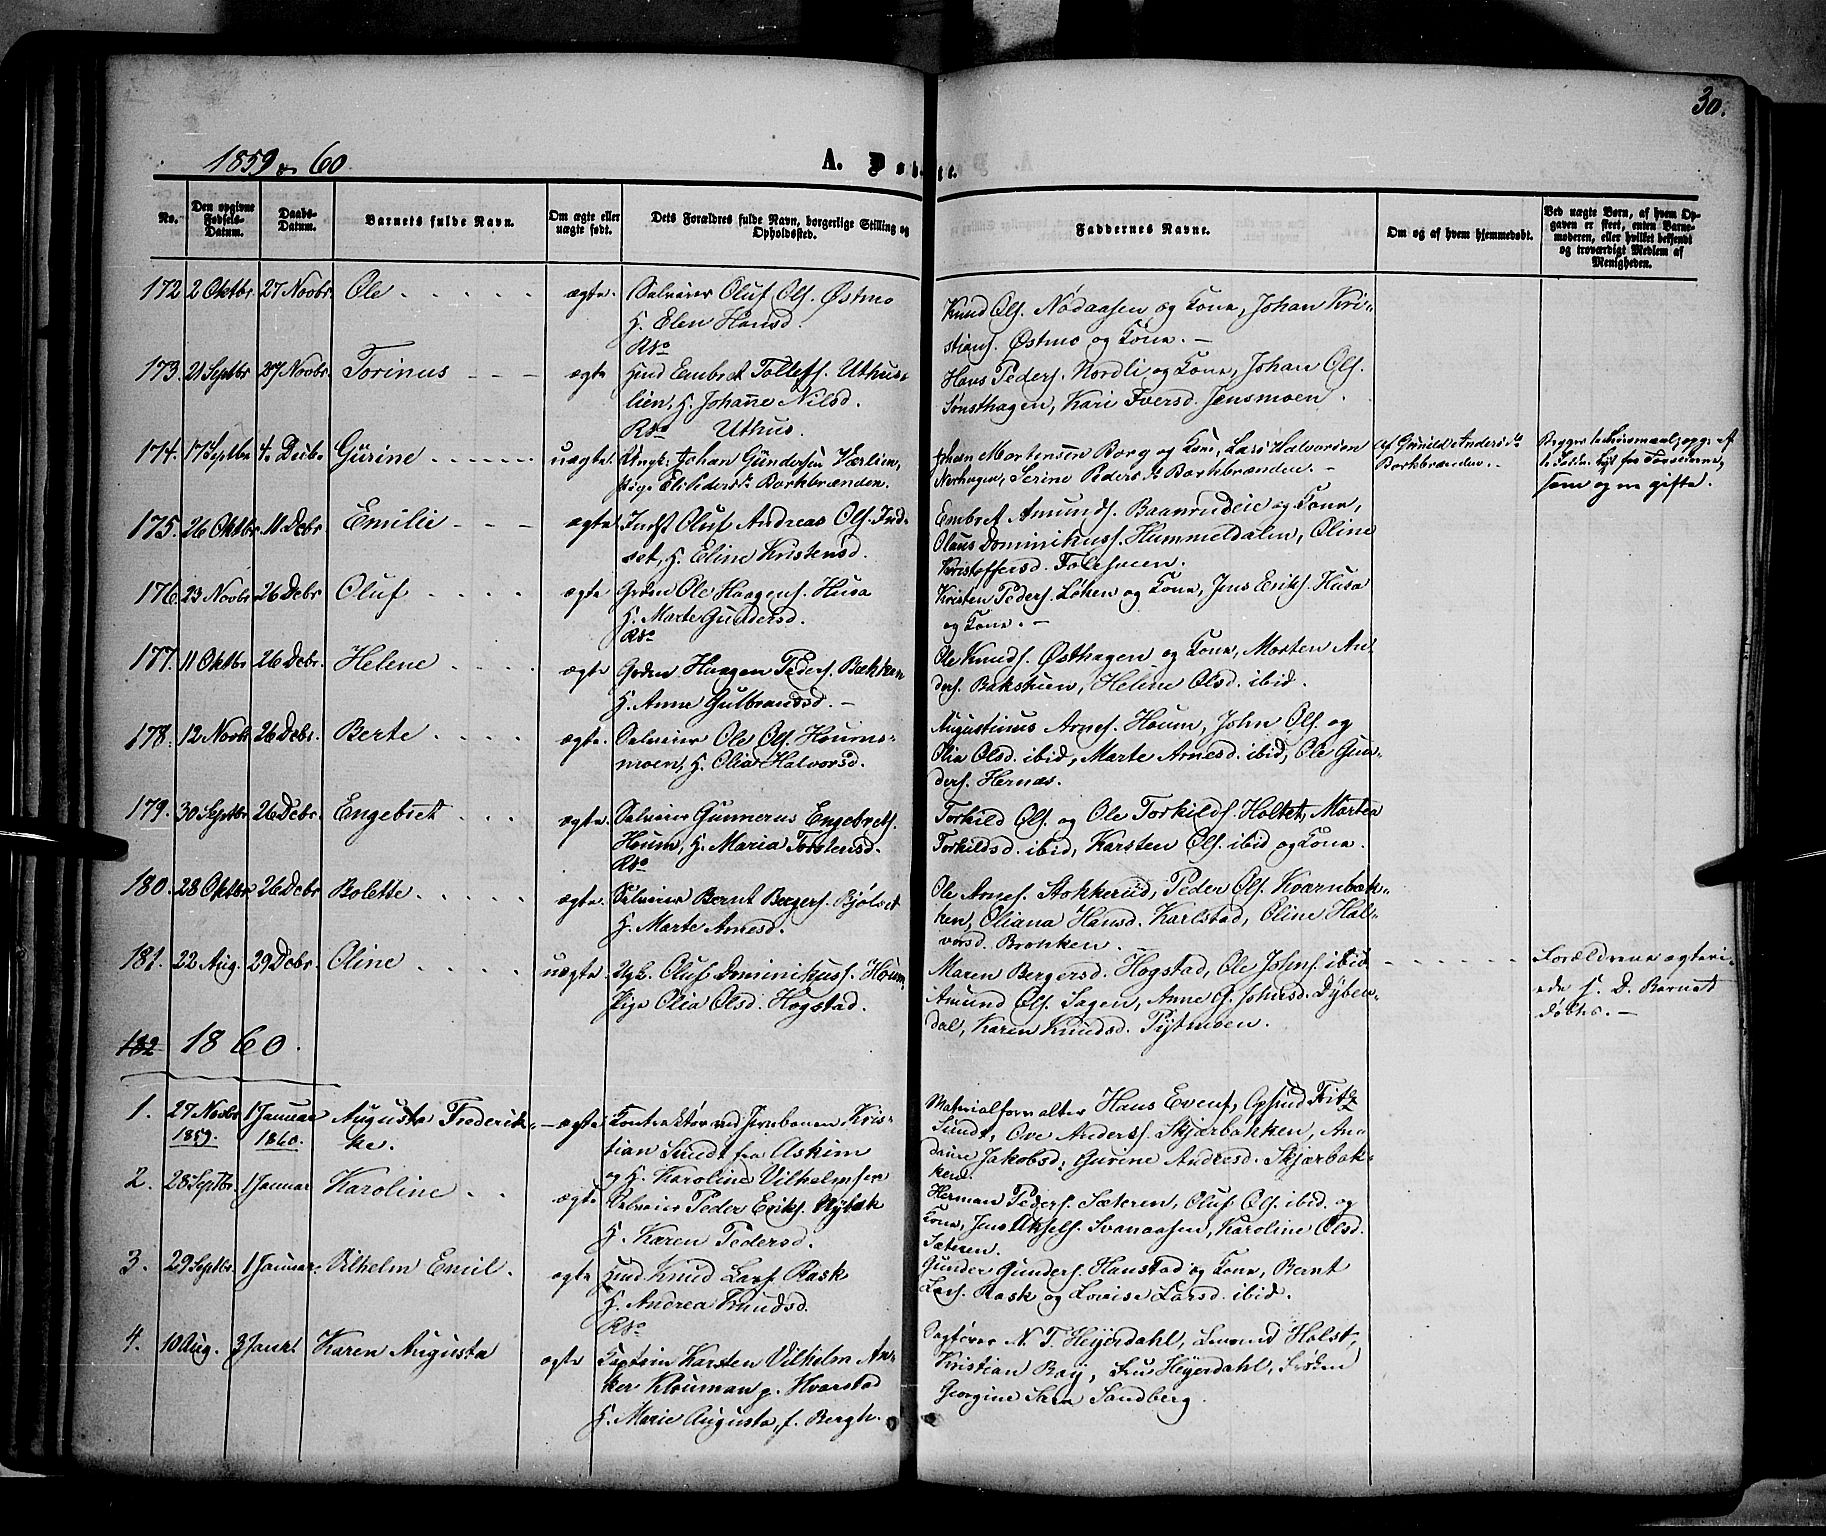 30.
1859 & 60.
A. Døbte.
No.
Den opgivne Fødsels-Datum.
Daabs-Datum.
Barnets fulde Navn.
Om ægte eller uægte født.
Dets Forældres fulde Navn, borgerlige Stilling og Opholdssted.
Faddernes Navne.
Om og af hvem hjemmedøbt.
Ved uægte Børn, af hvem Opgaven er skeet, enten Barnemoderen, eller hvilket bekjendt og troværdigt Medlem af Menigheden.
172 2 Oktbr 27 Novbr. Ole ægte. Selveier Oluf Ols. Østmo
H. Elen Hansd.
Knud Ols. Nodaasen og Kone, Johan Kri-
stians. Østmo og Kone. —
173. 21 Septbr 27 Novbr. Torinus ægte Hmd Embret Tollefs. Uthus-
lien, H. Johanne Nilsd.
Uthus.
Hans Peders. Nordli og Kone, Johan Ols.
Sønsthagen, Kari Iversd. Jensmoen.
174. 17 Septbr 4. Decbr. Gurine uægte. Ungk. Johan Gundersen Værlien,
Pige Eli Pedersdr. Borkbrænden.
Johan Mortensen Borg og Kone, Lars Halvorsen
Norhagen, Serine Pedersdr. Borkbrænden. —
Af Gunild Andersdr.
Borkbrænden. —
som og ere gifte.
175. 26 Oktbr 11 Decbr. Emilie ægte. Indst Oluf Andreas Ols. Ind-
set, H. Eline Kristensd.
Embret Amunds. Baanrudeie og Kone,
Olaus Dominikuss. Hummeldalen, Oline
Kristoffersd. Foleshaven.
176. 23 Novbr 26 Decbr Oluf ægte Grdm Ole Haagens. Husa
H. Marte Gundersd.
Kristen Peders. Løken og Kone, Jens Eriks. Husa
og Kone. —
177. 11 Oktbr 26 Decbr. Helene ægte Grdm Haagen Peders. Bækken
H. Anne Gulbrandsd. —
Ole Knuds. Østhagen og Kone, Morten An-
ders. Bakstuen, Helene Olsd. ibid.
178. 12 Novbr 26 Decbr. Berte ægte. Selveier Ole Ols. Houms-
moen, H. Olia Halvorsd.
Augustinus Arnes. Houm, John Ols. og
Olia Olsd. ibid, Marte Arnesd. ibid, Ole Gun-
ders. Hernæs.
179. 30 Septbr. 26 Decbr. Engebret ægte. Selveier Gunnerus Engebrets.
Houm, H. Maria Torstensd.
Torkild Ols. og Ole Torkilds. Holtet, Martea
Torkildsd. ibid, Karsten Ols. ibid og Kone.
180. 28 Oktbr. 26 Decbr Bolette ægte. Selveier Bernt Bergers. Bjølset
H. Marte Arnesd.
Ole Arnes. Stokkerud, Peder Ols. Kvarnbæk-
ken, Oliana Hansd. Karlstad, Oline Hal-
vorsd. Brohken.
181. 22 Aug. 29 Decbr. Oline uægte. Ugk. Oluf Dominikuss. Houm,
Pige Olia Olsd. Hogstad.
Maren Bergersd. Hogstad, Ole Johns. ibid
Amund Ols. Sagen, Anne G. Johnsd. Dyben-
dal, Karen Knudsd. Pytmoen.
Forældrene ægtevi-
ede s. D. Barnet
døbtes. —
182 1860.
1. 27 Novbr 1859. 1 Januar 1860. Augusta Frederik-
ke. ægte Kontraktør ved Jernbanen Kris-
tian Sundt fra Askim
og H. Karoline Vilhelmsen
Materialforvalter Hans Evens. Opsund Fritz
Sundt, Ove Anders. Skjærbakken, An-
daine Jakobsd., Gurine Andresd. Skjærbak-
ken.
2. 28 Septbr. 1 Januar Karoline ægte Selveier Peder Eriks. Nybæk
H. Karen Pedersd.
Herman Peders. Sæteren, Oluf Ols. ibid. og
Kone, Jens Aksels. Svenaasen, Karoline Olsd.
Sæteren.
3. 29 Septbr. 1 Januar. Vilhelm Emil. ægte Hmd Knud Lars. Rask
H. Andrea Knudsd.
Gunder Gunders. Hanstad og Kone, Bernt
Lars. Rask og Lovise Larsd. ibid.
4. 10 Aug. 3 Januar Karen Augusta ægte Captein Karsten Vilhelm An-
ker Klouman p. Hvarstad
H. Marie Augusta, f. Bergh.
Sagfører N. T. Heyerdahl, Holst,
Kristian Roy, Fru Heyerdahl, Frøken
Georgine Sara Sandberg.